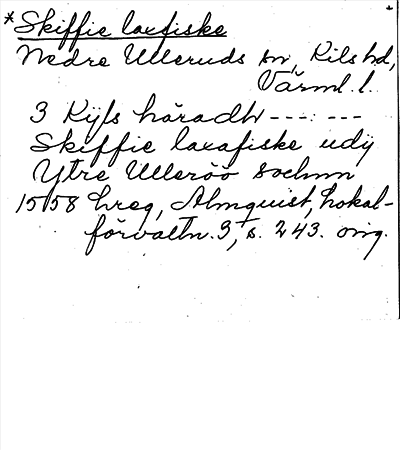 *Skiffie laxfiske
Nedre Ulleruds sn, Kils hd,
Värml. l.
3 Kijls häradh ---:---
Skiffie laxafiske udij
Ytre Ulleröö sochnn
1558 Lreg, Almquist, Lokal-
förvaltn. 3, s. 243. orig.